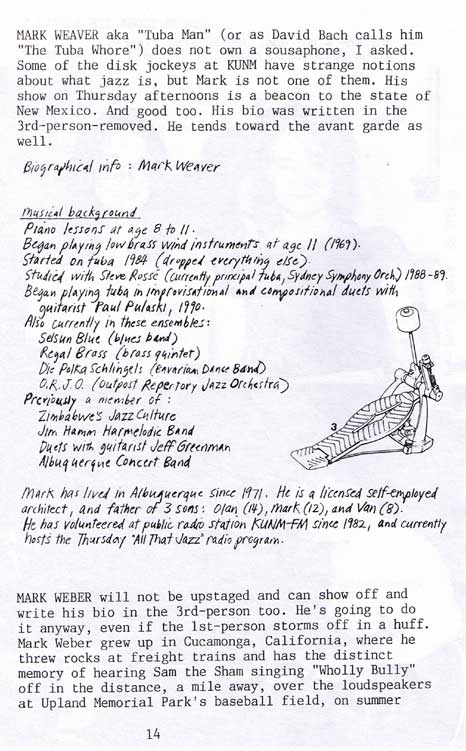 MARK WEAVER aka "Tuba Man" (or as David Bach calls him
"The Tuba Whore") does not own a sousaphone, I asked.
Some of the disk jockeys at KUNM have strange notions
about what jazz is, but Mark is not one of them. His
show on Thursday afternoons is a beacon to the state of
New Mexico. And good too. His bio was written in the
3rd-person-removed. He tends toward the avant garde as
well.
Biographical info : Mark Weaver
Musical background
Piano lessons at age 8 to 11.
Began playing low brass wind instruments at age 11 (1969).
Started on tuba 1984 (dropped everything else).
Studied with Steve Rossé (currently principal tuba, Sydney Symphony Orch.) 1988-89.
Began playing tuba in improvisational and compositional duets with
guitarist Paul Pulaski, 1990.
Also currently in these ensembles:
Selsun Blue (blues band)
Regal Brass (brass quintet)
Die Polka Schlingels (Bavarian Dance Band)
O.R.J.O. (Outpost Repertory Jazz Orchestra)
Previously a member of :
Zimbabwe's Jazz Culture
Jim Hamm Harmelodic Band
Duets with guitarist Jeff Greenman
Albuquerque Concert Band
3
Mark has lived in Albuquerque since 1971. He is a licensed self-employed
architect, and father of 3 sons: Olan (14), Mark (12), and Van (8).
He has volunteered at public radio station KUNM-FM since 1982, and currently
hosts the Thursday "All That Jazz" radio program.
MARK WEBER will not be upstaged and can show off and
write his bio in the 3rd-person too. He's going to do
it anyway, even if the 1st-person storms off in a huff.
Mark Weber grew up in Cucamonga, California, where he
threw rocks at freight trains and has the distinct
memory of hearing Sam the Sham singing "Wholly Bully"
off in the distance, a mile away, over the loudspeakers
at Upland Memorial Park's baseball field, on summer
14